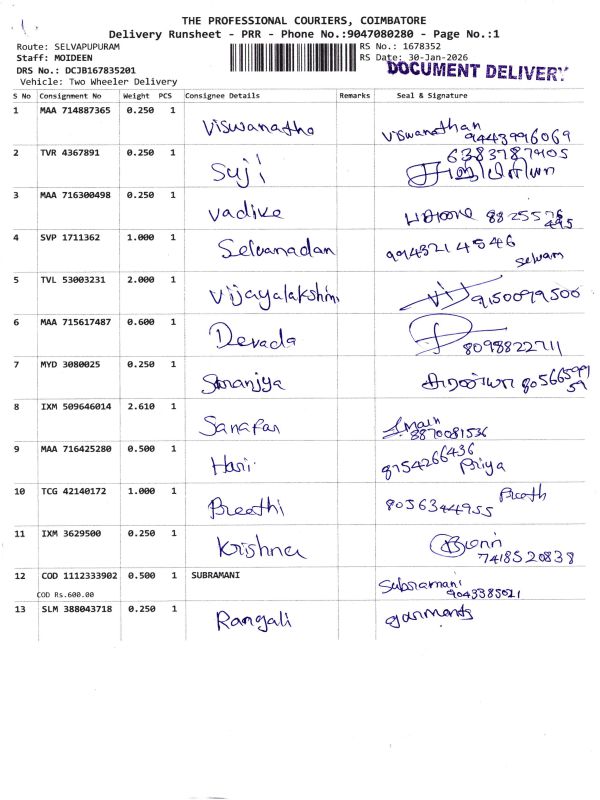 THE PROFESSIONAL COURIERS, COIMBATORE
Delivery Runsheet - PRR - Phone No.:9047080280 - Page No.:1
Route: SELVAPUPURAM RS No.: 1678352
Staff: MOIDEEN RS Date: 30-Jan-2026
DRS No.: DCJB167835201 DOCUMENT DELIVERY
Vehicle: Two Wheeler Delivery
S No Consignment No Weight PCS Consignee Details Remarks Seal & Signature
1 MAA 714887365 0.250 1 Viswanatha Viswanathan
9443996069
2 TVR 4367891 0.250 1 Suji 6383787905
3 MAA 716300498 0.250 1 Vadive 8825576
495
4 SVP 1711362 1.000 1 Selvanadan 9994321 45546
selvam
5 TVL 53003231 2.000 1 Vijayalakshmi 9150099500
6 MAA 715617487 0.600 1 Devada 8098822711
7 MYD 3080025 0.250 1 80566599
59
8 IXM 509646014 2.610 1 Sanafan
8870081536
9 MAA 716425280 0.500 1 Hari 8754266436
Priya
10 TCG 42140172 1.000 1 Preethi Preeth
8056344955
11 IXM 3629500 0.250 1 Krishna
7418520838
12 COD 1112333902 0.500 1 SUBRAMANI Subramani
COD Rs.600.00 9043385021
13 SLM 388043718 0.250 1 Rangali garments